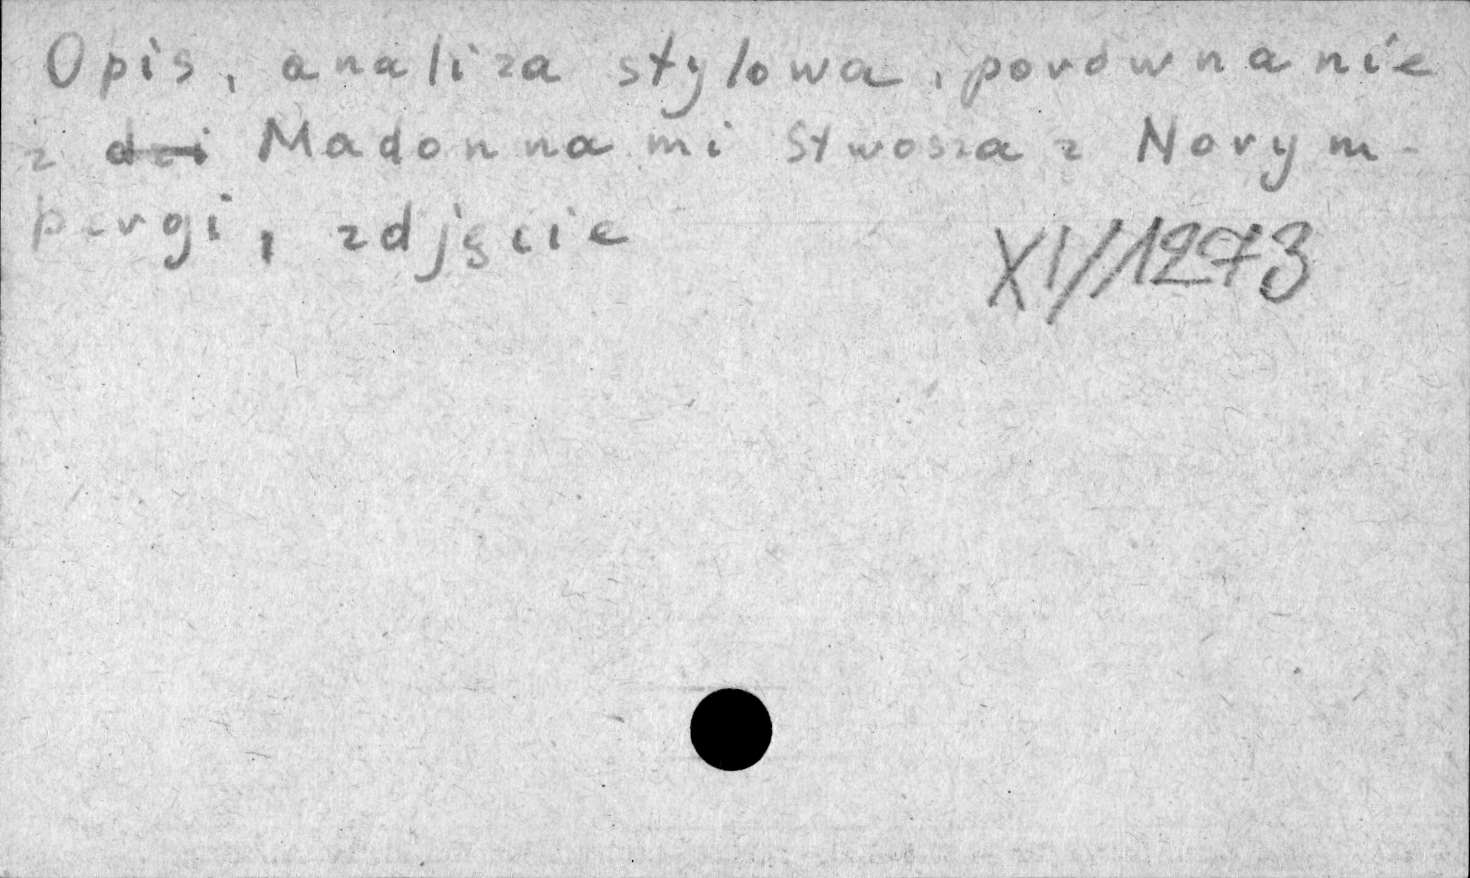 Opis, analiza stylowa, porównanie
z dzi Madonnami Stwosza z Norym-
bergi, zdjęcie
XI/1273